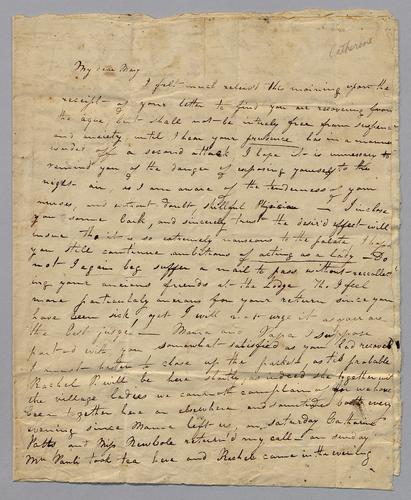 Catherine
My dear Mary
I felt much relievd this morning upon the
receipt of your letter to find you are recovering from
the ague, but shall not be intirely free from suspense
and anxiety, until I hear your has in a manner
off a second attack I hope it is unnecessary to
remind you of the danger of exposing yourself to the
night air, as I am aware of the tenderness of your
nurses, and without doubt, skillful Physician — I inclose
you some bark, and sincerely trust the desir'd effect will
ensue tho it is so extremely nauseous to the palate, I hope
you still continue ambitious of acting as a lady — Do
not I again beg suffer a mail to pass without recollect
ing your anxious friends at the Lodge Tho I feel
more particularly anxious for your return since you
have been sick, yet I will not urge it as you are
the best judge — Mama and Papa I suppose
parted with you somewhat satisfied as you had recover'd
I must hasten to close up this as tis probable
Rachel P. will be here shortly, as indeed she together with
the village ladies we cannot complain of for we have
been together here or elsewhere and sometimes both every
evening since Mama left us, on saturday Catharine
Potts and Miss Newbole return'd my call — on sunday
Mrs took tea here and Rachel came in the evening